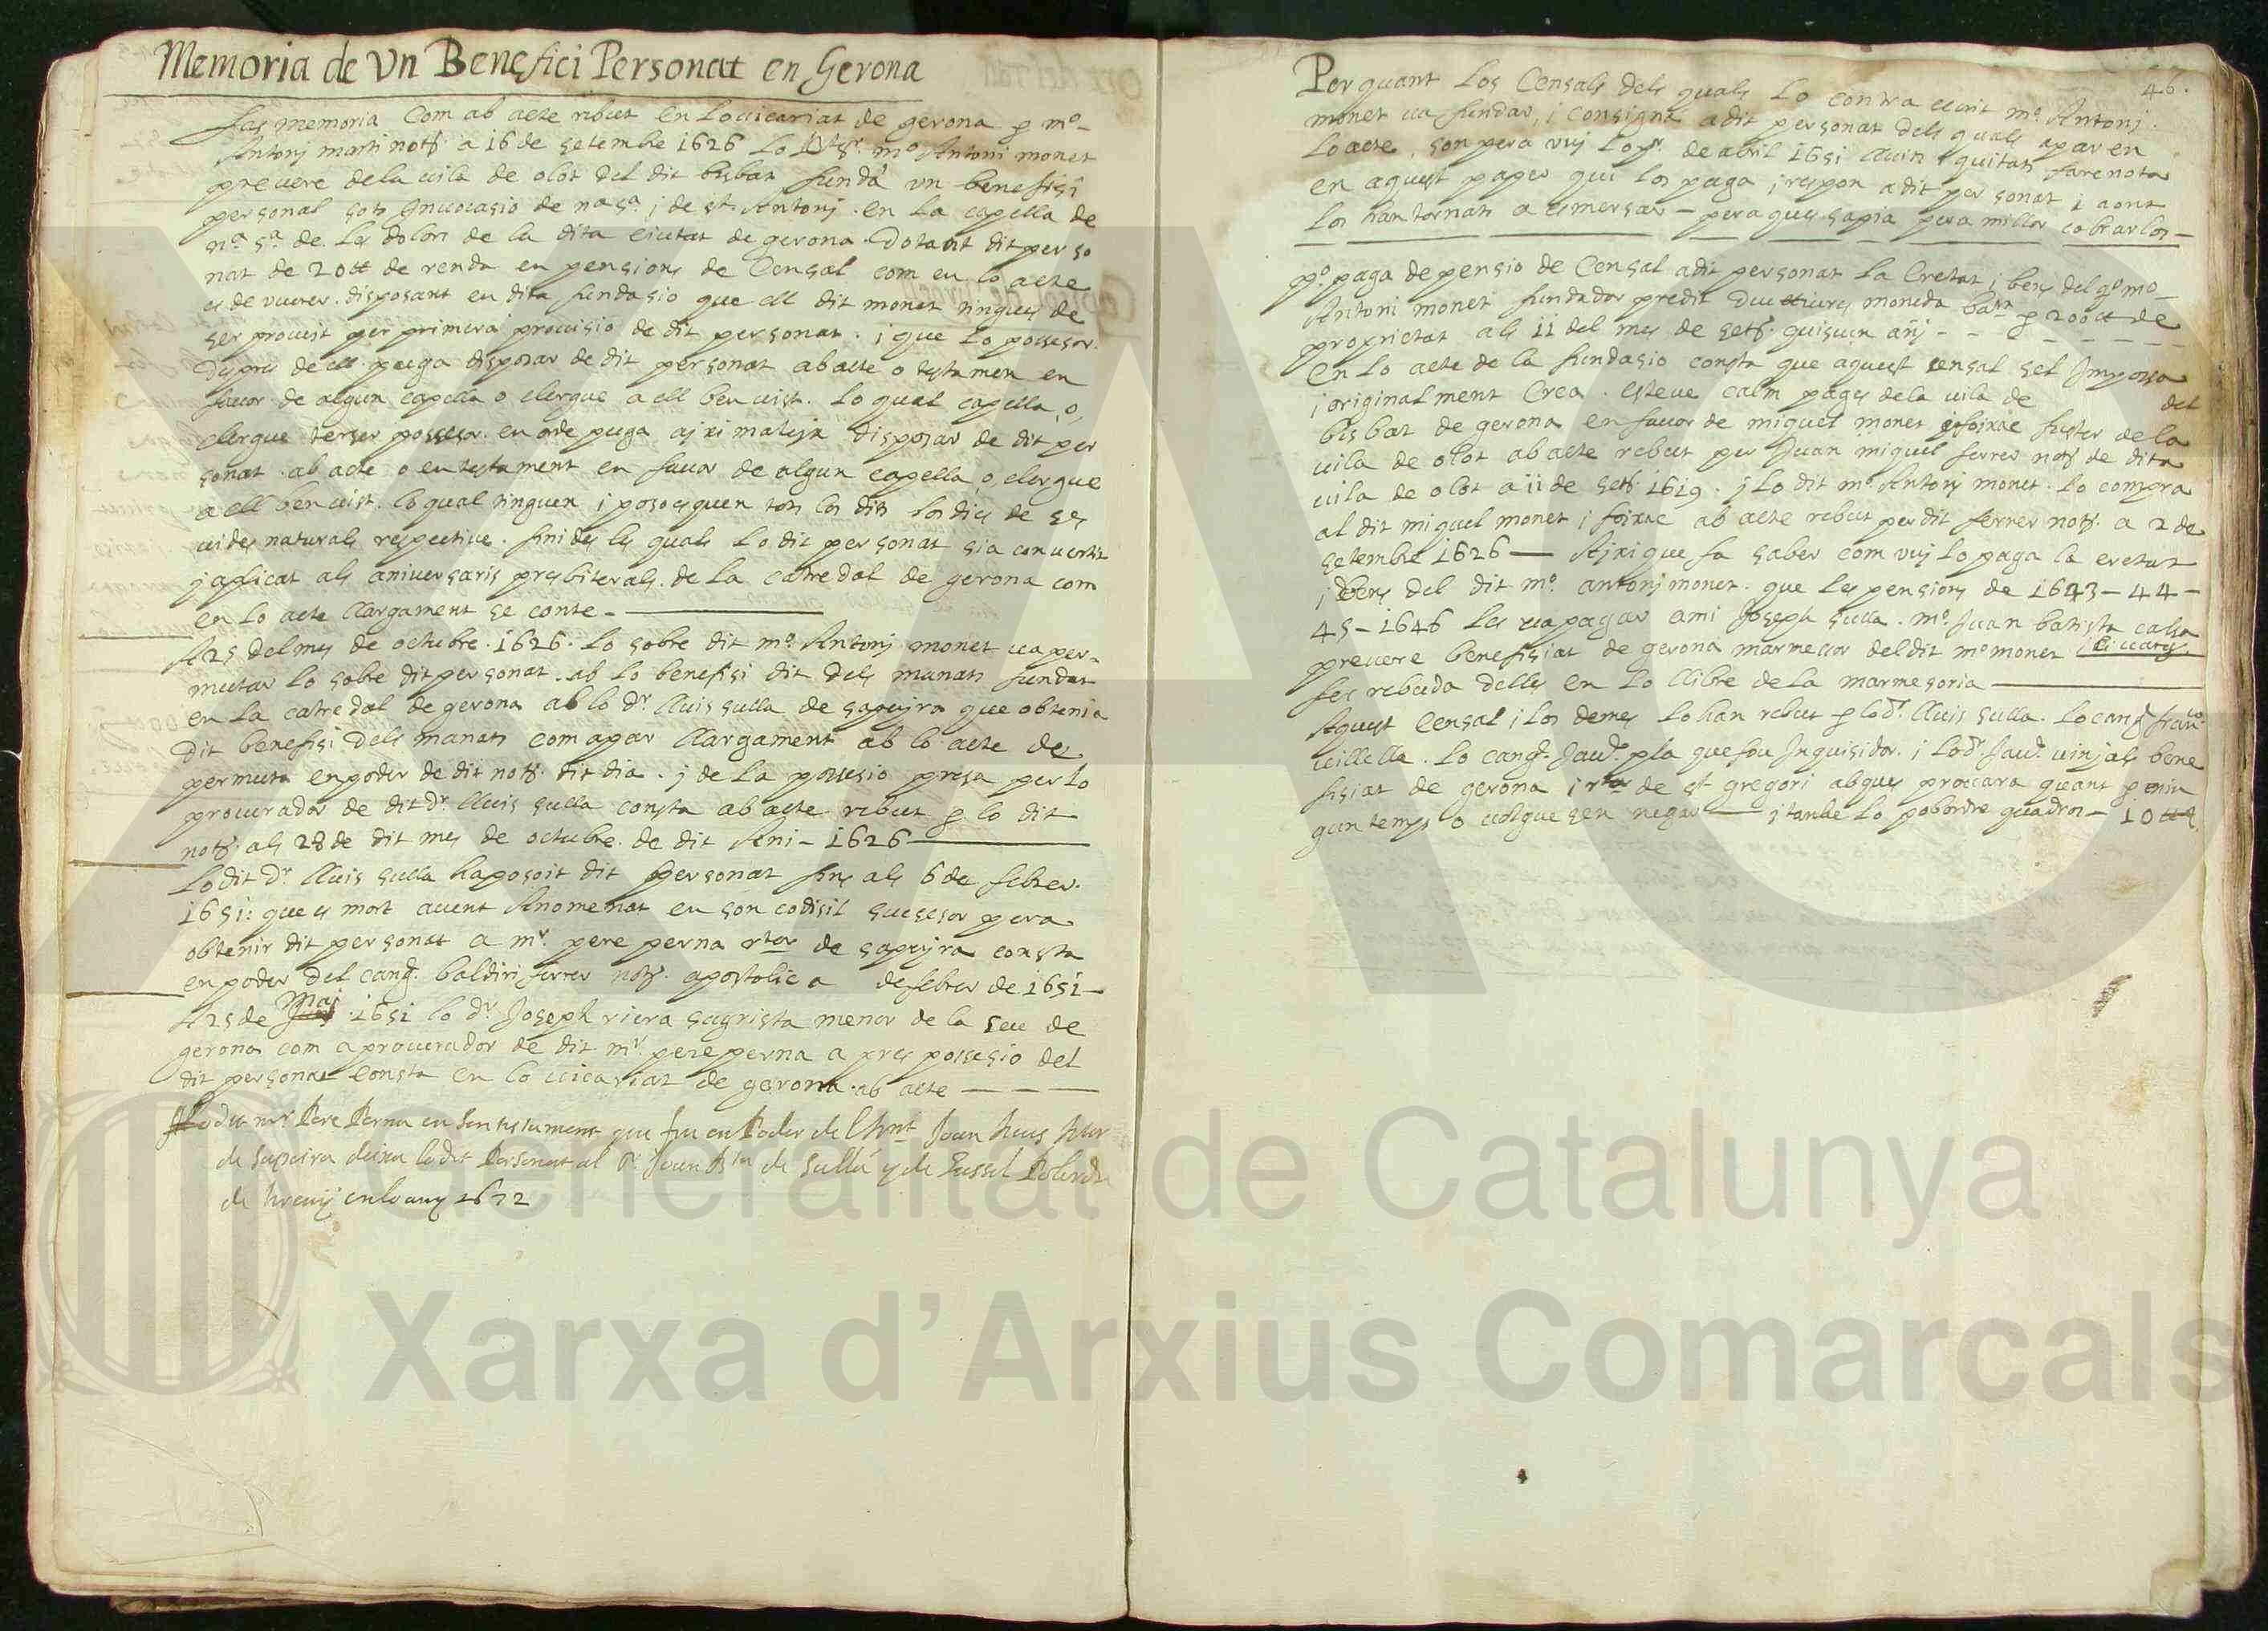 Memoria de Vn Benefici Personat en Gerona
fas memoria Com ab acte rebut En Lo vicariat de gerona p mº
Antonj marti notʳ. a 16 de setembre 1626 Lo mº Antoni monet
prevere de la vila de olot del dit bisbat fundá vn benefisi
personal sots Invocasio de nª sª i de sᵗ Antonj. en La capella de
nª sª de los dolors de la dita ciutat de gerona. Dotant dit perso
nat de 20 ₶ de renda en pensions de Censal com en lo acte
es de veurer. disposant en dita fundasio que ell dit monet tingues de
ser provist per primera provisio de dit personat. i que lo possesor.
despres de ell puga disposar de dit personat ab acte o testamen en
favor de algun capella o clergue a ell ben vist. Lo qual capella, o,
clergue terser possesor. en orde puga ajxi mateix disposar de dit per
sonat. ab acte o en testament en favor de algun capella, o, clergue
a ell ben vist. lo qual tinguen i posoesquen tots los dits los dies de ses
vides naturals respective. finides les quals Lo dit personat sia convertit
j aplicat als aniversaris presbiterals de La catredal de gerona com
en lo acte llargament se conte
A 25 del mes de octubre. 1626. lo sobre dit mº Antonj monet va per
mutar lo sobre dit personat. ab lo benefisi dit dels manats fundat
en La catredal de gerona ab lo dʳ. lluis sulla de sapeyra que obtenia
dit benefisi dels manats com apar llargament ab lo acte de
permuta en poder de dit notʳ. dit dia. j de La possesio presa per lo
procurador de dit dʳ. lluis sulla consta ab acte rebut p lo dit
notʳ. als 28 de dit mes de octubre. de dit Ani - 1626
Lo dit dʳ. lluis sulla ha posoit dit personat fins als 6 de febrer.
1651: que es mort avent Anomenat en son codisil susesor pera
obtenir dit personat a mʳ. pere perna rᵗᵒʳ de sapeyra consta
en poder del cang. baldiri ferrer notʳ. apostolic a de febrer de 1651
A 25 de Mai 1651 lo dʳ. Joseph riera sagrista menor de la seu de
gerona com a procurador de dit mʳ. pere perna a pres possesio del
dit personat consta en lo vicariat de gerona. ab acte
Lo dit mʳ Pere Perna en son testament que feu en Poder de Joan
de Sapeira deixa lo dit Personat al Joan Bᵗᵃ de Sullá y de
de en lo any 1672
46.
Per quant Los Censals dels quals Lo contra escrit mº. Antonj.
monet va fundar, i consigná a dit personat dels quals apar en
lo acte, son pera vuj Lo pʳ. de abril 1651 lluits i quitats fare nota
en aquest paper qui los paga i respon a dit personat i a ont
los han tornats a esmersar - pera que sapia pera millor cobrarlos
pº paga de pensio de Censal a dit personat La Eretat i bens del qº mº
Antoni monet fundador predit deu lliures moneda balª p 200 ₶ de
proprietat als 11 del mes de setʳ. quiscun añj
En lo acte de la fundasio consta que aquest censal sel Imposa
i originalment Crea. esteve calm pages de la vila de del
bisbat de gerona en favor de miquel monet i foixac fuster de la
vila de olot ab acte rebut per Juan miquel ferrer notʳ de dita
vila de olot a 11 de setʳ. 1619. j Lo dit mº Antonj monet. Lo compra
al dit miquel monet i foixac ab acte rebut per dit ferrer notʳ. a 2 de
setembre 1626 - Ajxi que fa saber com vuj lo paga la eretat
i bens del dit mº. antonj monet. que les pensions de 1643 - 44 -
45 - 1646 les va pagar a mi Joseph sulla. mº. Juan batista calsa
prevere benefisiat de gerona marmesor del dit mº monet
fer rebuda delles en Lo llibre de la marmesoria
Aquest Censal i los demes Lo han rebut p lo dʳ. lluis sulla. Lo cang franᶜᵒ.
villella. Lo cang. Jauᵐ pla que fou Inquisidor. i lo dʳ. Jauᵐ. vinjals bene
fisiat de gerona i rᵗᵒʳ de sᵗ gregori ab que procurara quant p nin
gun temps o volguesen negar - i tambe lo pobordre quadros - 10 ₶
Generalitat de Catalunya
Xarxa d'Arxius Comarcals
XAC